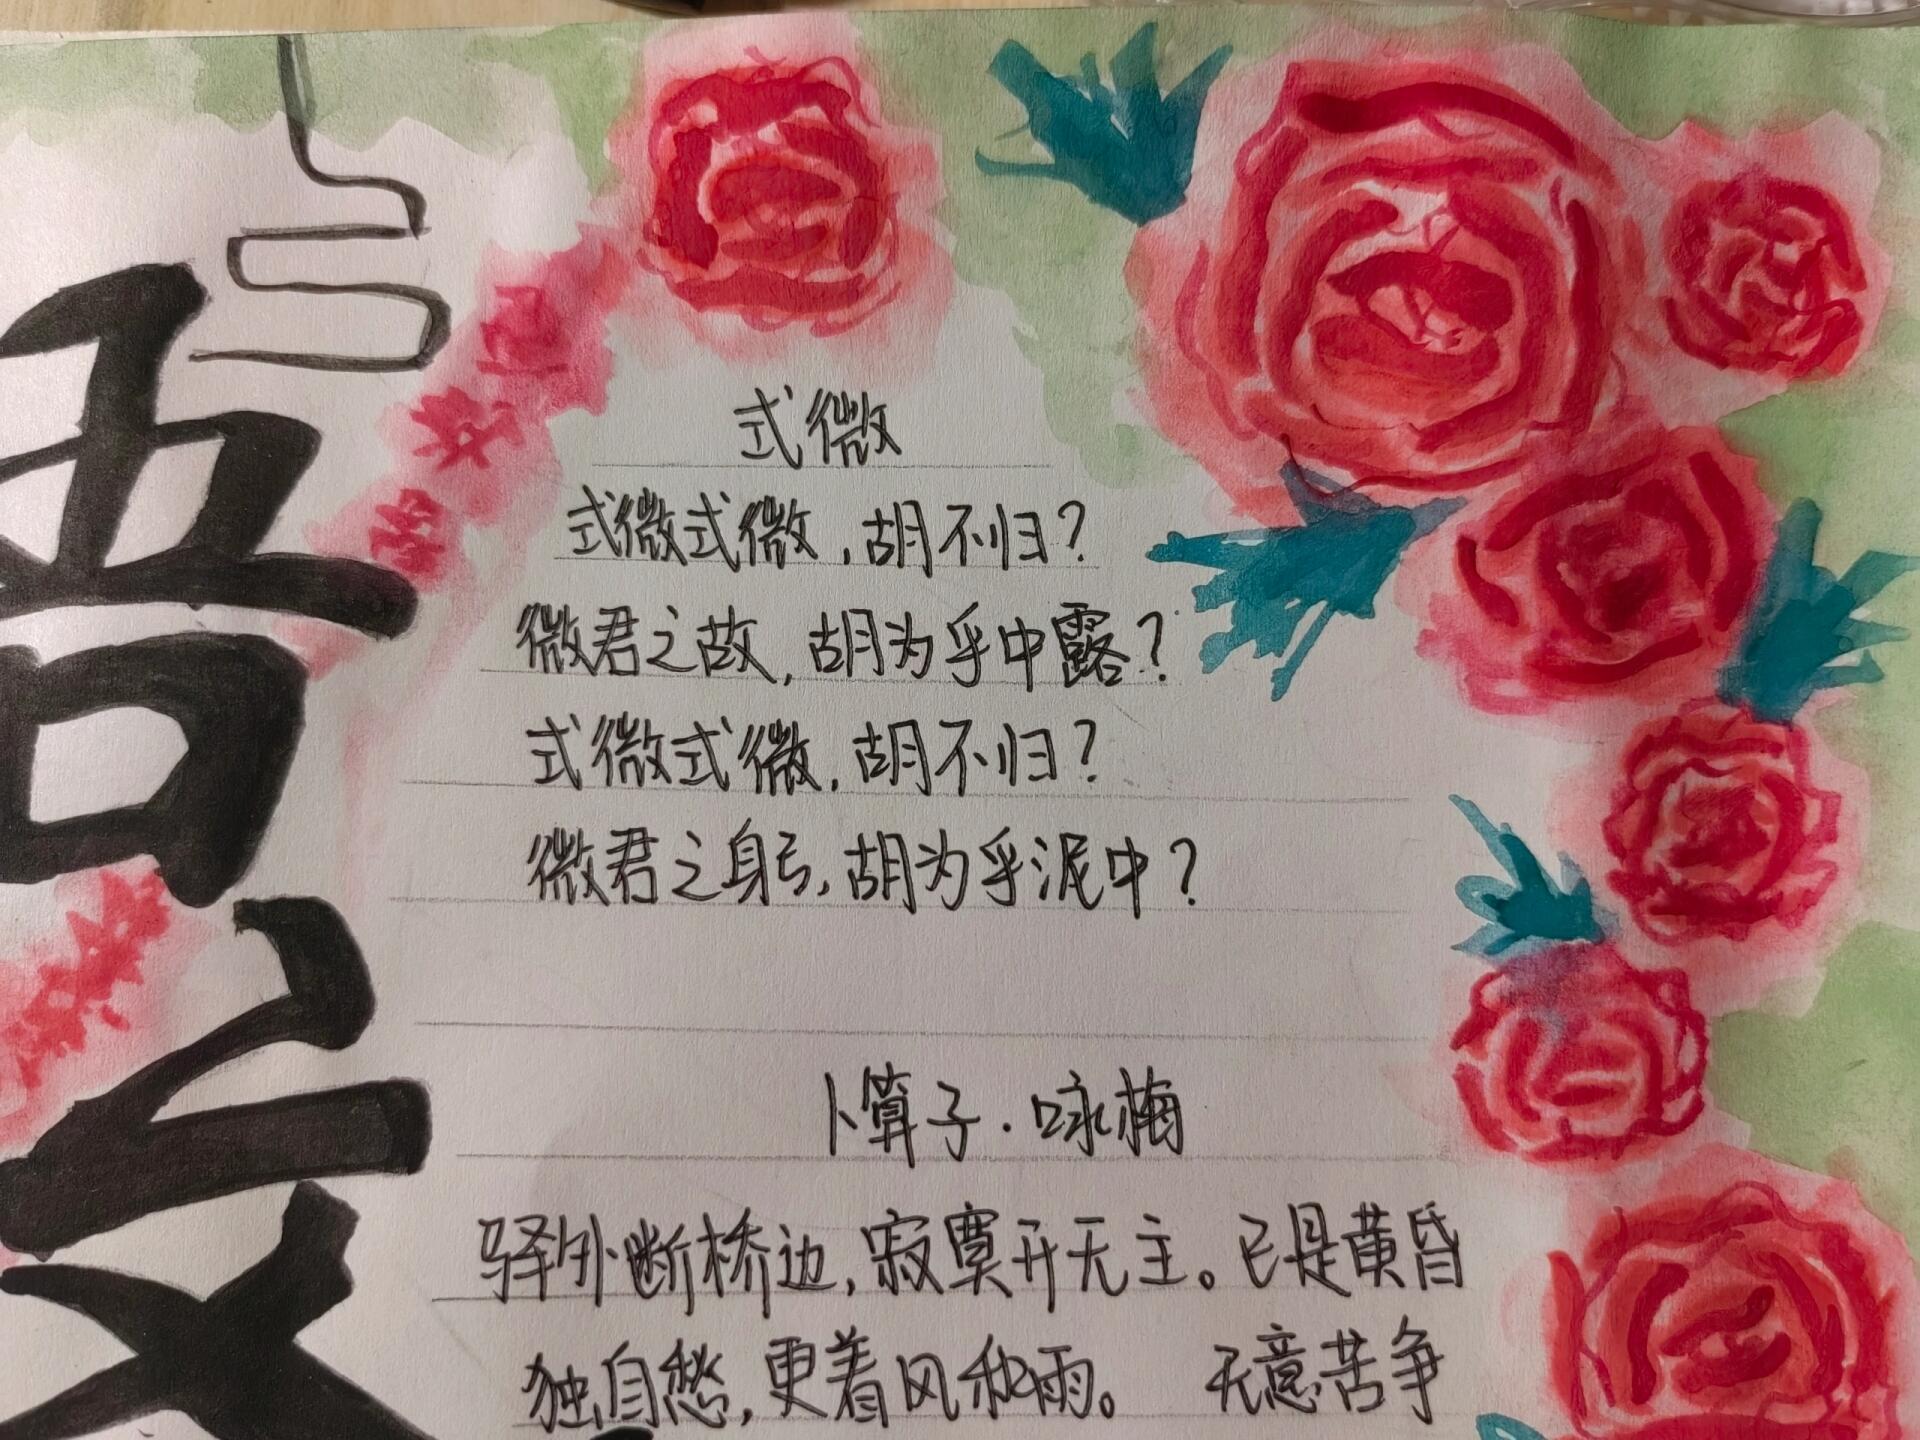 语文
式微
式微式微,胡不归?
微君之故,胡为乎中露?
式微式微,胡不归?
微君之躬,胡为乎泥中?
卜算子·咏梅
驿外断桥边,寂寞开无主。已是黄昏
独自愁,更着风和雨。 无意苦争